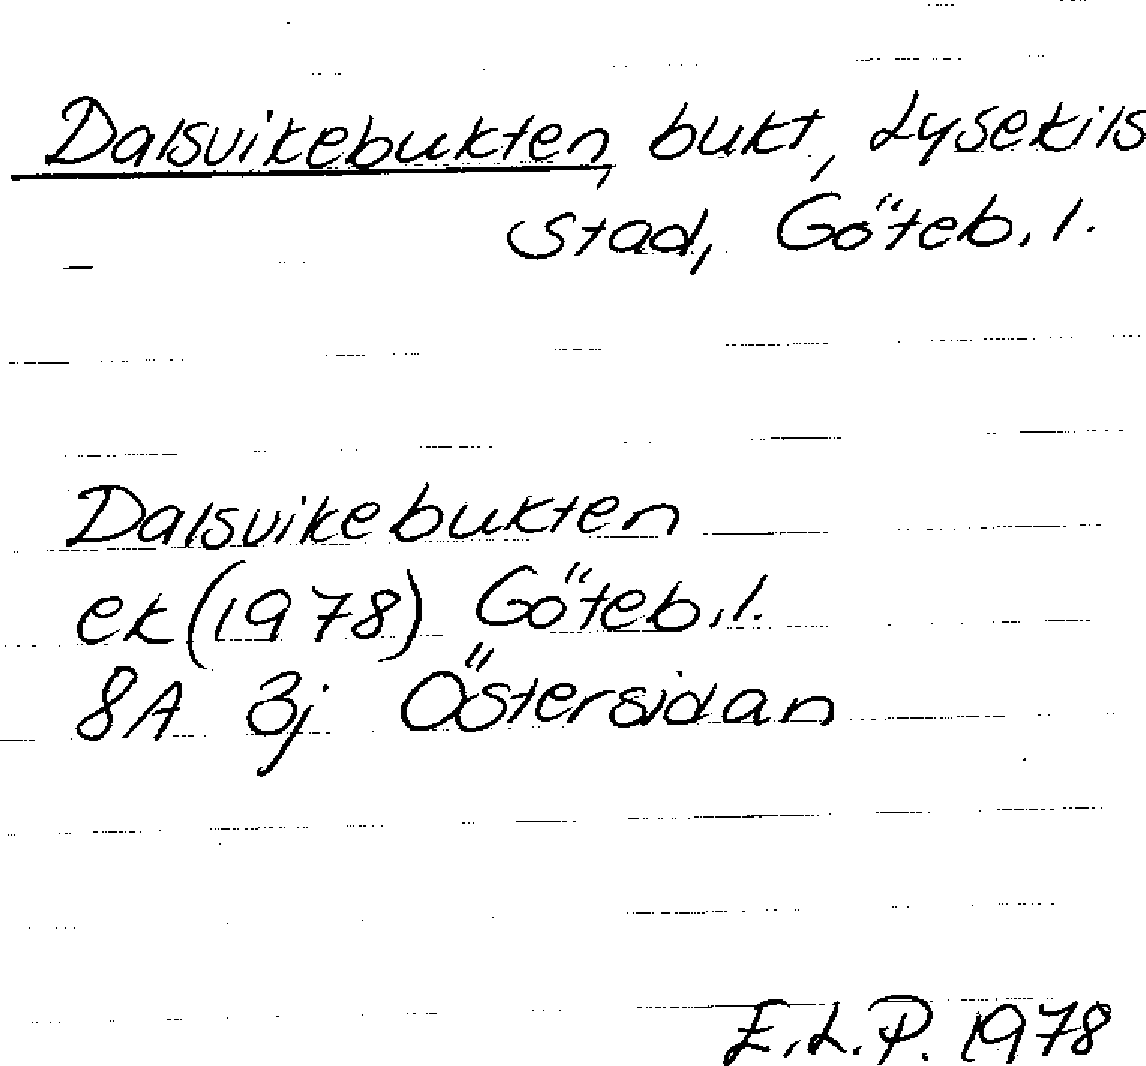 Dalsvikebukten, bukt, Lysekils
stad, Göteb. l.
Dalsvikebukten
ek (1978) Göteb. l.
8A 3j Östersidan
E.L.P. 1978